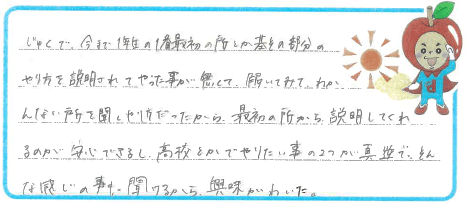 じゅくで、今まで1年生の1番最初の所しか基その部分の
やり方を説明されてやった事が無くて、解いてみて、わか
んない所を聞くやり方だったから、最初の所から、説明してくれ
るのが安心できるし、高校とかでやりたい事の2つが真逆で、そん
な感じの事も、聞けるから、興味がわいた。